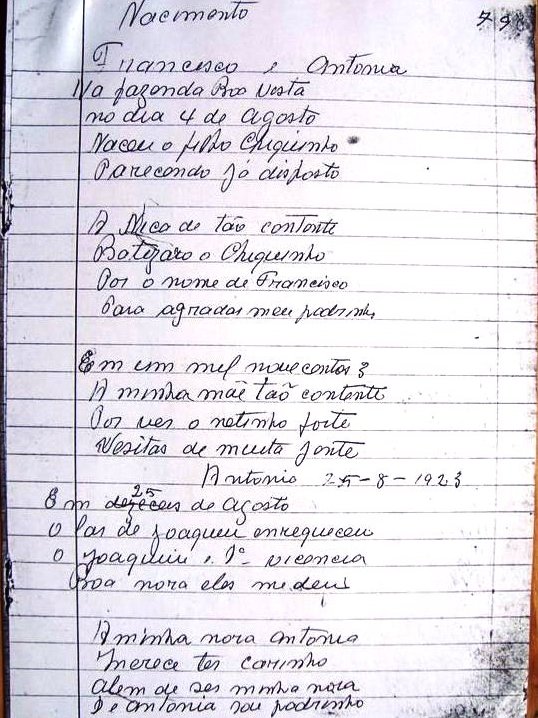 Nacimento
Francisco e Antonia
Na fazenda Boa Vista
no dia 4 de Agosto
Naceu o filho Chiquinho
Parecendo já disposto
A Nica de tão contente
Batizaro o Chiquinho
Por o nome de Francisco
Para agradar meu padrinho
Em um mil novecentos 3
A minha mãe tão contente
Por ver o netinho forte
Vesitas de muita jente
Antonia 25-8-1923
Em 25 de Agosto
O lar de Joaquim enrequeceu
O Joaquim e Dª vicencia
Boa nora eles me deu
A minha nora Antonia
Merece ter carinho
Alem de ser minha nora
De Antonia sou padrinho